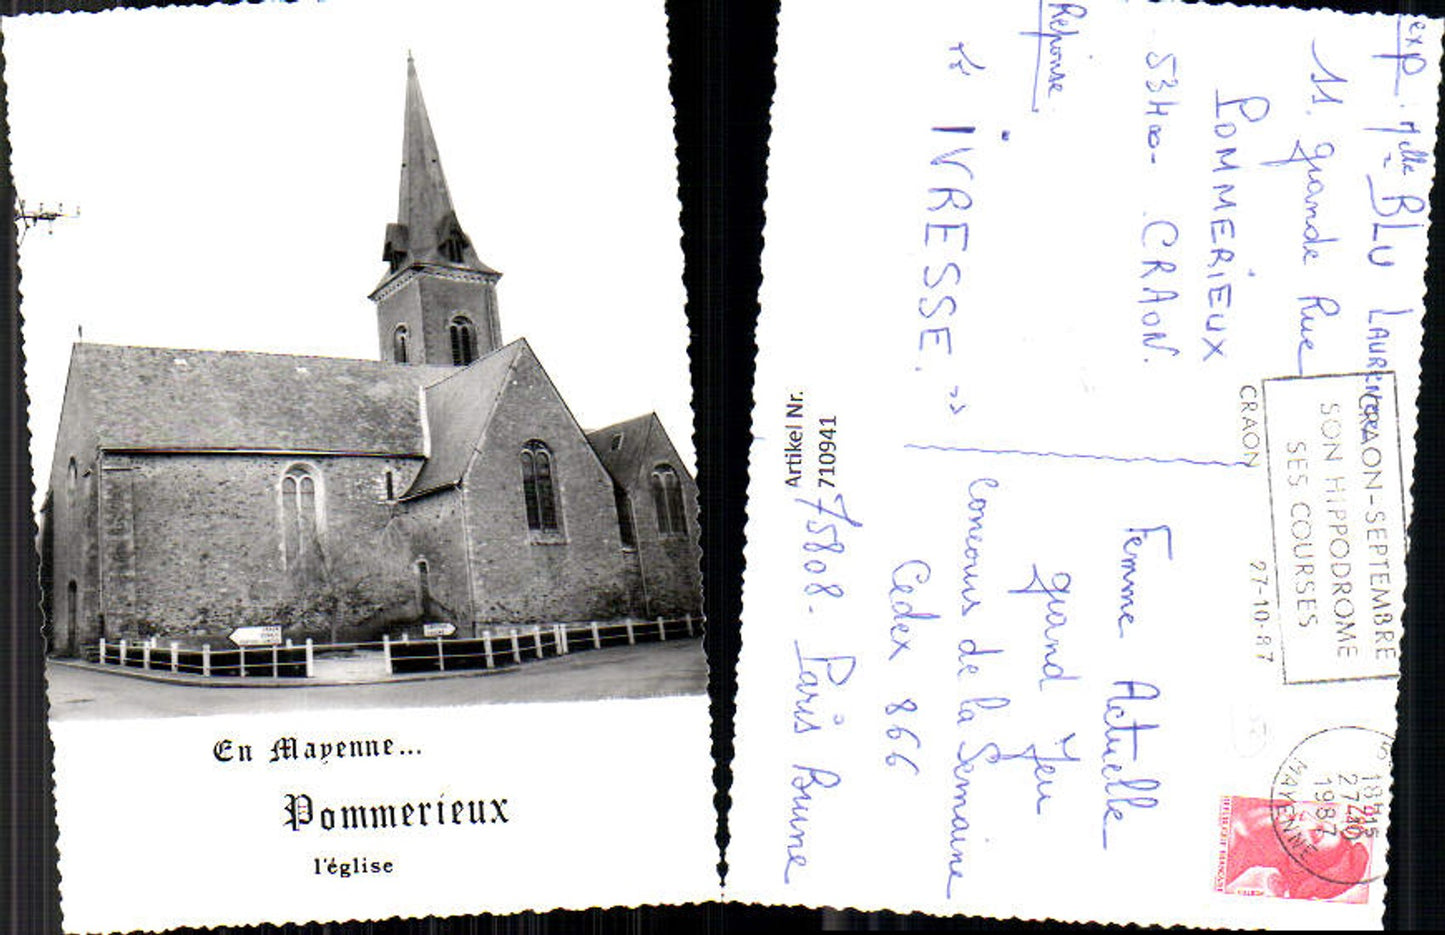 En Mayenne...
Pommerieux
l'église
exp. Melle BLU LAURENCE
11, grande Rue
POMMERiEUX
53400 - CRAON.
Réponse.
" iVRESSE. "
CRAON-SEPTEMBRE
SON HIPPODROME
SES COURSES
CRAON 27-10-87
18H15
27-10
1987
MAYENNE
REPUBLIQUE FRANCAISE
Femme Actuelle
grand Jeu
Concours de la Semaine
Cedex 866
75808. Paris Brune
Artikel Nr.
710941